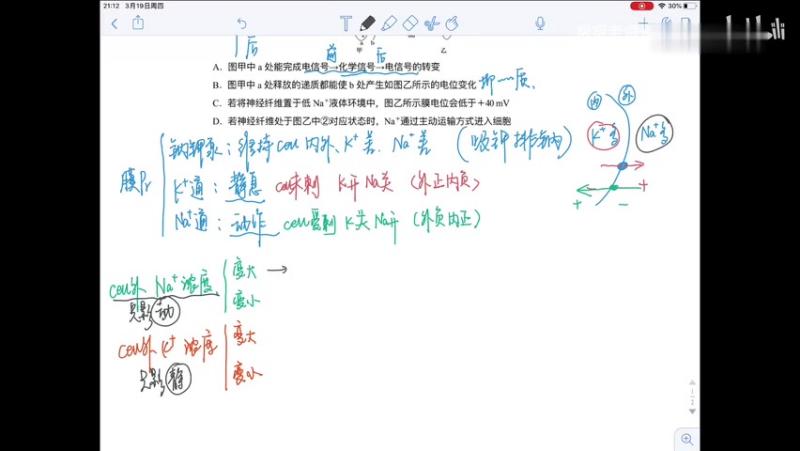 21:12 3月19日周四 30%
后
前 后
甲 乙
A. 图甲中 a 处能完成电信号→化学信号→电信号的转变
B. 图甲中 a 处释放的递质都能使 b 处产生如图乙所示的电位变化
C. 若将神经纤维置于低 Na⁺液体环境中，图乙所示膜电位会低于+40 mV
D. 若神经纤维处于图乙中②对应状态时，Na⁺通过主动运输方式进入细胞
内 外
K⁺多 Na⁺多
钠钾泵：维持cell内外 K⁺差、Na⁺差 (吸钾排钠)
膜Pr
K⁺通：静息 cell未刺 K开Na关 (外正内负)
Na⁺通：动作 cell受刺 K关Na开 (外负内正)
+ + −
cell外 Na⁺浓度 变大 →
变小
只影动
cell外 K⁺浓度 变大
变小
只影静